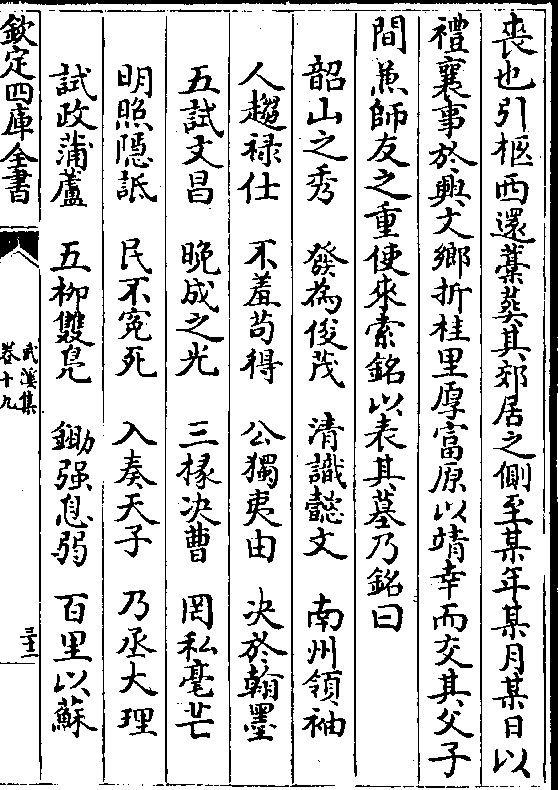 喪也引柩西還藁葬其郊居之側至某年某月某日以
禮襄事於興大鄉折桂里厚富原以靖幸而交其父子
間兼師友之重使來索銘以表其墓乃銘曰
韶山之秀 發為俊茂 清識懿文 南州領袖
人趨禄仕 不羞苟得 公獨夷由 决於翰墨
五試文昌 晚成之光 三椽决曹 罔私毫芒
明照隱詆 民不寃死 入奏天子 乃丞大理
試政蒲蘆 五柳雙鳬 鋤强息弱 百里以蘇
欽定四庫全書
武溪集
卷十九
三十三